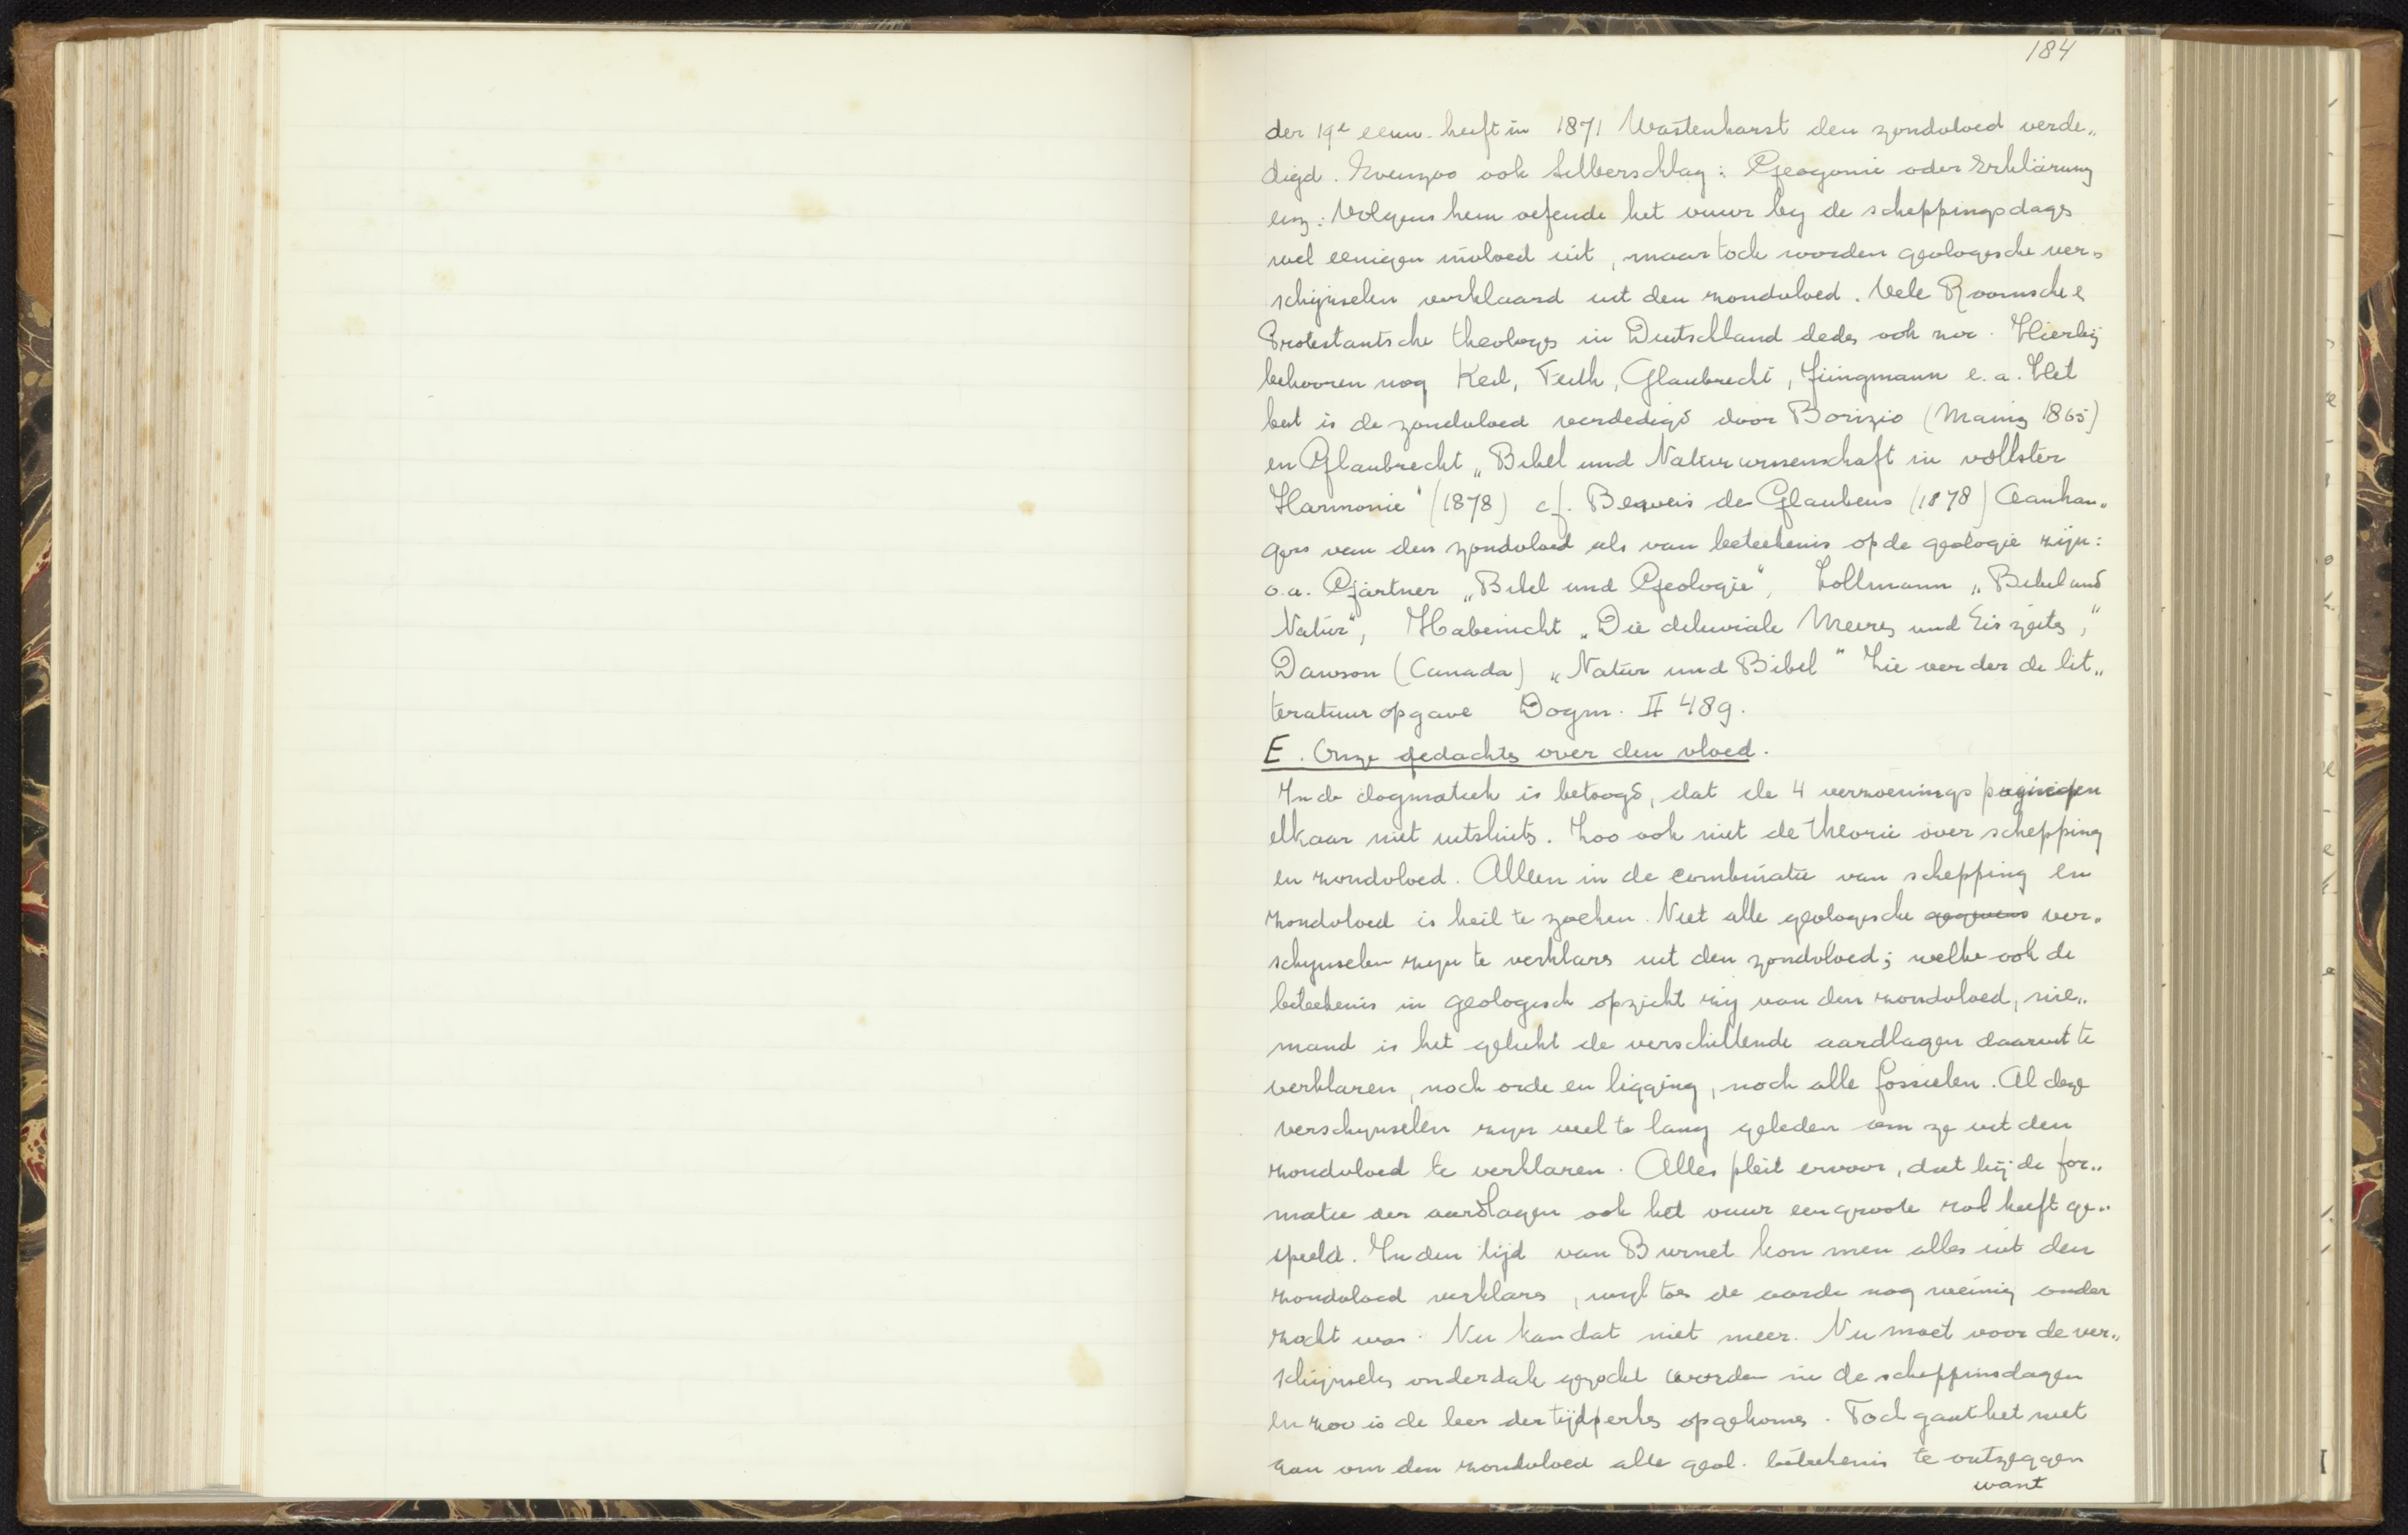 184
der 19e eeuw heeft in 1871 Wastenharst den zondvloed verde„
digd. Evenzoo ook Silberschlag: Geogonie oder Erklärung
enz: Volgens hem oefende het vuur by de scheppingsdags
wel eenigen invloed uit, maar toch worden geologische ver„
schijnselen verklaard uit den zondvloed. Vele Roomsche &
Protestantsche theologs in Duitschland deds ook zoo. Hierbij
behooren nog Keil, Feith, Glaubrecht, Jüngmann e.a. Het
best is de zondvloed verdedigd door Borizio (Mainz 1865)
en Glaubrecht „Bibel und Naturwissenschaft in vollster
Harmonie" (1878) cf. Beweis de Glaubens (1878) Aanhan„
gers van den zondvloed als van beteekenis op de geologie zijn:
o.a. Gärtner „Bibel und Geologie", Zollmann „Bibel und
Natur", Habenicht „Die diluviale Meeres und Eis zeits,"
Dawson (Canada) „Natur und Bibel" Zie verder de lit„
teratuur opgave Dogm. II 489.
E. Onze gedachts over den vloed.
In de dogmatiek is betoogd, dat de 4 verzoenings pogingen
elkaar niet uitsluits. Zoo ook niet de theorie over schepping
en zondvloed. Alleen in de combinatie van schepping en
zondvloed is heil te zoeken. Niet alle geologische gegevens ver„
schynselen zyn te verklars uit den zondvloed; welke ook de
beteekenis in geologisch opzicht zij van den zondvloed, nie„
mand is het gelukt de verschillende aardlagen daaruit te
verklaren, noch orde en ligging, noch alle fossielen. Al deze
verschynselen zyn veel te lang geleden om ze uit den
zondvloed te verklaren. Alles pleit ervoor, dat bij de for„
matie der aardlagen ook het vuur een groote rol heeft ge„
speeld. In den tijd van Burnet kon men alles uit den
zondvloed verklars, wyl toe de aarde nog weinig onder
zocht was. Nu kan dat niet meer. Nu moet voor de ver„
schijnsels onderdak gezocht worden in de scheppinsdagen
en zoo is de leer der tijdperks opgekoms. Toch gaat het niet
aan om den zondvloed alle geol. beteekenis te ontzeggen
want